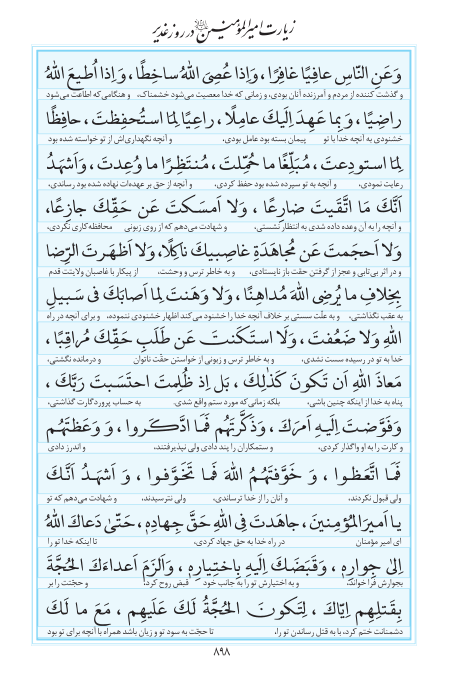 زیارت امیرالمؤمنین علیه‌السلام در روز غدیر
وَعَنِ النّاسِ عافِيًا غافِرًا ، وَاِذا عُصِىَ اللهُ ساخِطًا، وَاِذا اُطيعَ اللهُ
و گذشت کننده از مردم و آمرزنده آنان بودی، و زمانی که خدا معصیت می‌شود خشمناک، و هنگامی‌که اطاعت می‌شود
راضِيًا ، وَبِما عَهِدَ اِلَيكَ عامِلًا ، راعِيًا لِمَا استُحفِظتَ ، حافِظًا
خشنودی به آنچه خدا با تو پیمان بسته بود عامل بودی، و آنچه نگهداری‌اش از تو خواسته شده بود
لِمَا استودِعتَ ، مُبَلِّغًا ما حُمِّلتَ ، مُنتَظِرًا ما وُعِدتَ ، وَاَشهَدُ
رعایت نمودی، و آنچه به تو سپرده شده بود حفظ کردی، و آنچه از حق بر عهده‌ات نهاده شده بود رساندی،
اَنَّكَ مَا اتَّقَيتَ ضارِعًا ، وَلا اَمسَكتَ عَن حَقِّكَ جازِعًا،
و آنچه را به آن وعده داده شدی به انتظار نشستی، و شهادت می‌دهم که از روی زبونی محافظه‌کاری نکردی،
وَلا اَحجَمتَ عَن مُجاهَدَةِ غاصِبيكَ ناكِلًا، وَلا اَظهَرتَ الرِّضا
و در اثر بی‌تابی و عجز از گرفتن حقت باز نایستادی، و به خاطر ترس و وحشت، از پیکار با غاصبان ولایتت قدم
بِخِلافِ ما يُرضِى اللهَ مُداهِنًا ، وَلا وَهَنتَ لِما اَصابَكَ فى سَبيلِ
به عقب نگذاشتی، و به علّت سستی بر خلاف آنچه خدا را خشنود می‌کند اظهار خشنودی ننموده، و برای آنچه در راه
اللهِ وَلا ضَعُفتَ ، وَلَا استَكَنتَ عَن طَلَبِ حَقِّكَ مُراقِبًا ،
خدا به تو در رسیده سست نشدی، و به خاطر ترس و زبونی از خواستن حقّت ناتوان و درمانده نگشتی،
مَعاذَ اللهِ اَن تَكونَ كَذٰلِكَ ، بَل اِذ ظُلِمتَ احتَسَبتَ رَبَّكَ ،
پناه به خدا از اینکه چنین باشی، بلکه زمانی‌که مورد ستم واقع شدی، به حساب پروردگارت گذاشتی،
وَفَوَّضتَ اِلَيهِ اَمرَكَ ، وَذَكَّرتَهُم فَمَا ادَّكَروا ، وَ وَعَظتَهُم
و کارت را به او واگذار کردی، و ستمکاران را پند دادی ولی نپذیرفتند، و اندرز دادی
فَمَا اتَّعَظوا ، وَ خَوَّفتَهُمُ اللهَ فَما تَخَوَّفوا ، وَ اَشهَدُ اَنَّكَ
ولی قبول نکردند، و آنان را از خدا ترساندی، ولی نترسیدند، و شهادت می‌دهم که تو
يا اَميرَ المُؤمِنينَ ، جاهَدتَ فِى اللهِ حَقَّ جِهادِهِ، حَتّىٰ دَعاكَ اللهُ
ای امیر مؤمنان در راه خدا به حق جهاد کردی، تا اینکه خدا تو را
اِلىٰ جِوارِهِ ، وَقَبَضَكَ اِلَيهِ بِاختِيارِهِ ، وَاَلزَمَ اَعداءَكَ الحُجَّةَ
بجوارش فرا خواند، و به اختیارش تو را به جانب خود قبض روح کرد، و حجّتت را بر
بِقَتلِهِم اِيّاكَ ، لِتَكونَ الحُجَّةُ لَكَ عَلَيهِم ، مَعَ ما لَكَ
دشمنانت ختم کرد، با به قتل رساندن تو را، تا حجّت به سود تو و زیان باشد همراه با آنچه برای تو بود
۸۹۸